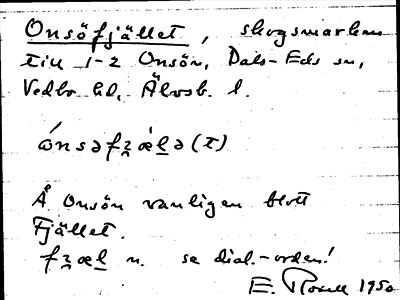 Onsöfjället, skogsmarken
till 1-2 Onsön, Dals-Eds sn,
Vedbo hd, Älvsb. l.
ònsəfʒæ̀lə(t)
Å Onsön vanligen blott
Fjället.
fʒæl n. se dial.-orden!
E. Rosell 1950